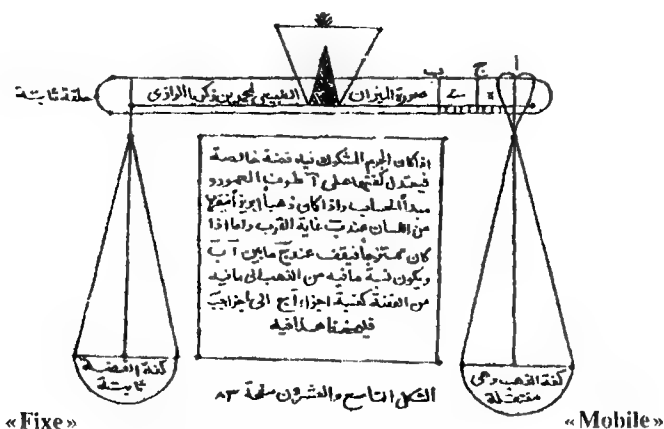 ب ج ا
حلقة ثابتة
صورة الميزان الطبيعي لمحمد بن زكريا الرازى
اذا كان الجرم المشكوك فيه فضة خالصة
فيعتدل كفتها على آ طرف العمود و
مبدأ الحساب واذا كان ذهباً ابريزاً
من اللسان عند ب غاية القرب واما اذا
كان ممتزجاً فيقف عند ج مابين آ ب
ويكون نسبة مافيه من الذهب الى مافيه
من الفضة كنسبة اجزاء آج الى اجزاء جب
هذا فيه
كفة الفضة
ثابتة
كفة الذهب وهى
منتقلة
الشكل التاسع والعشرون صفحة ٨٣
«Fixe»
«Mobile»